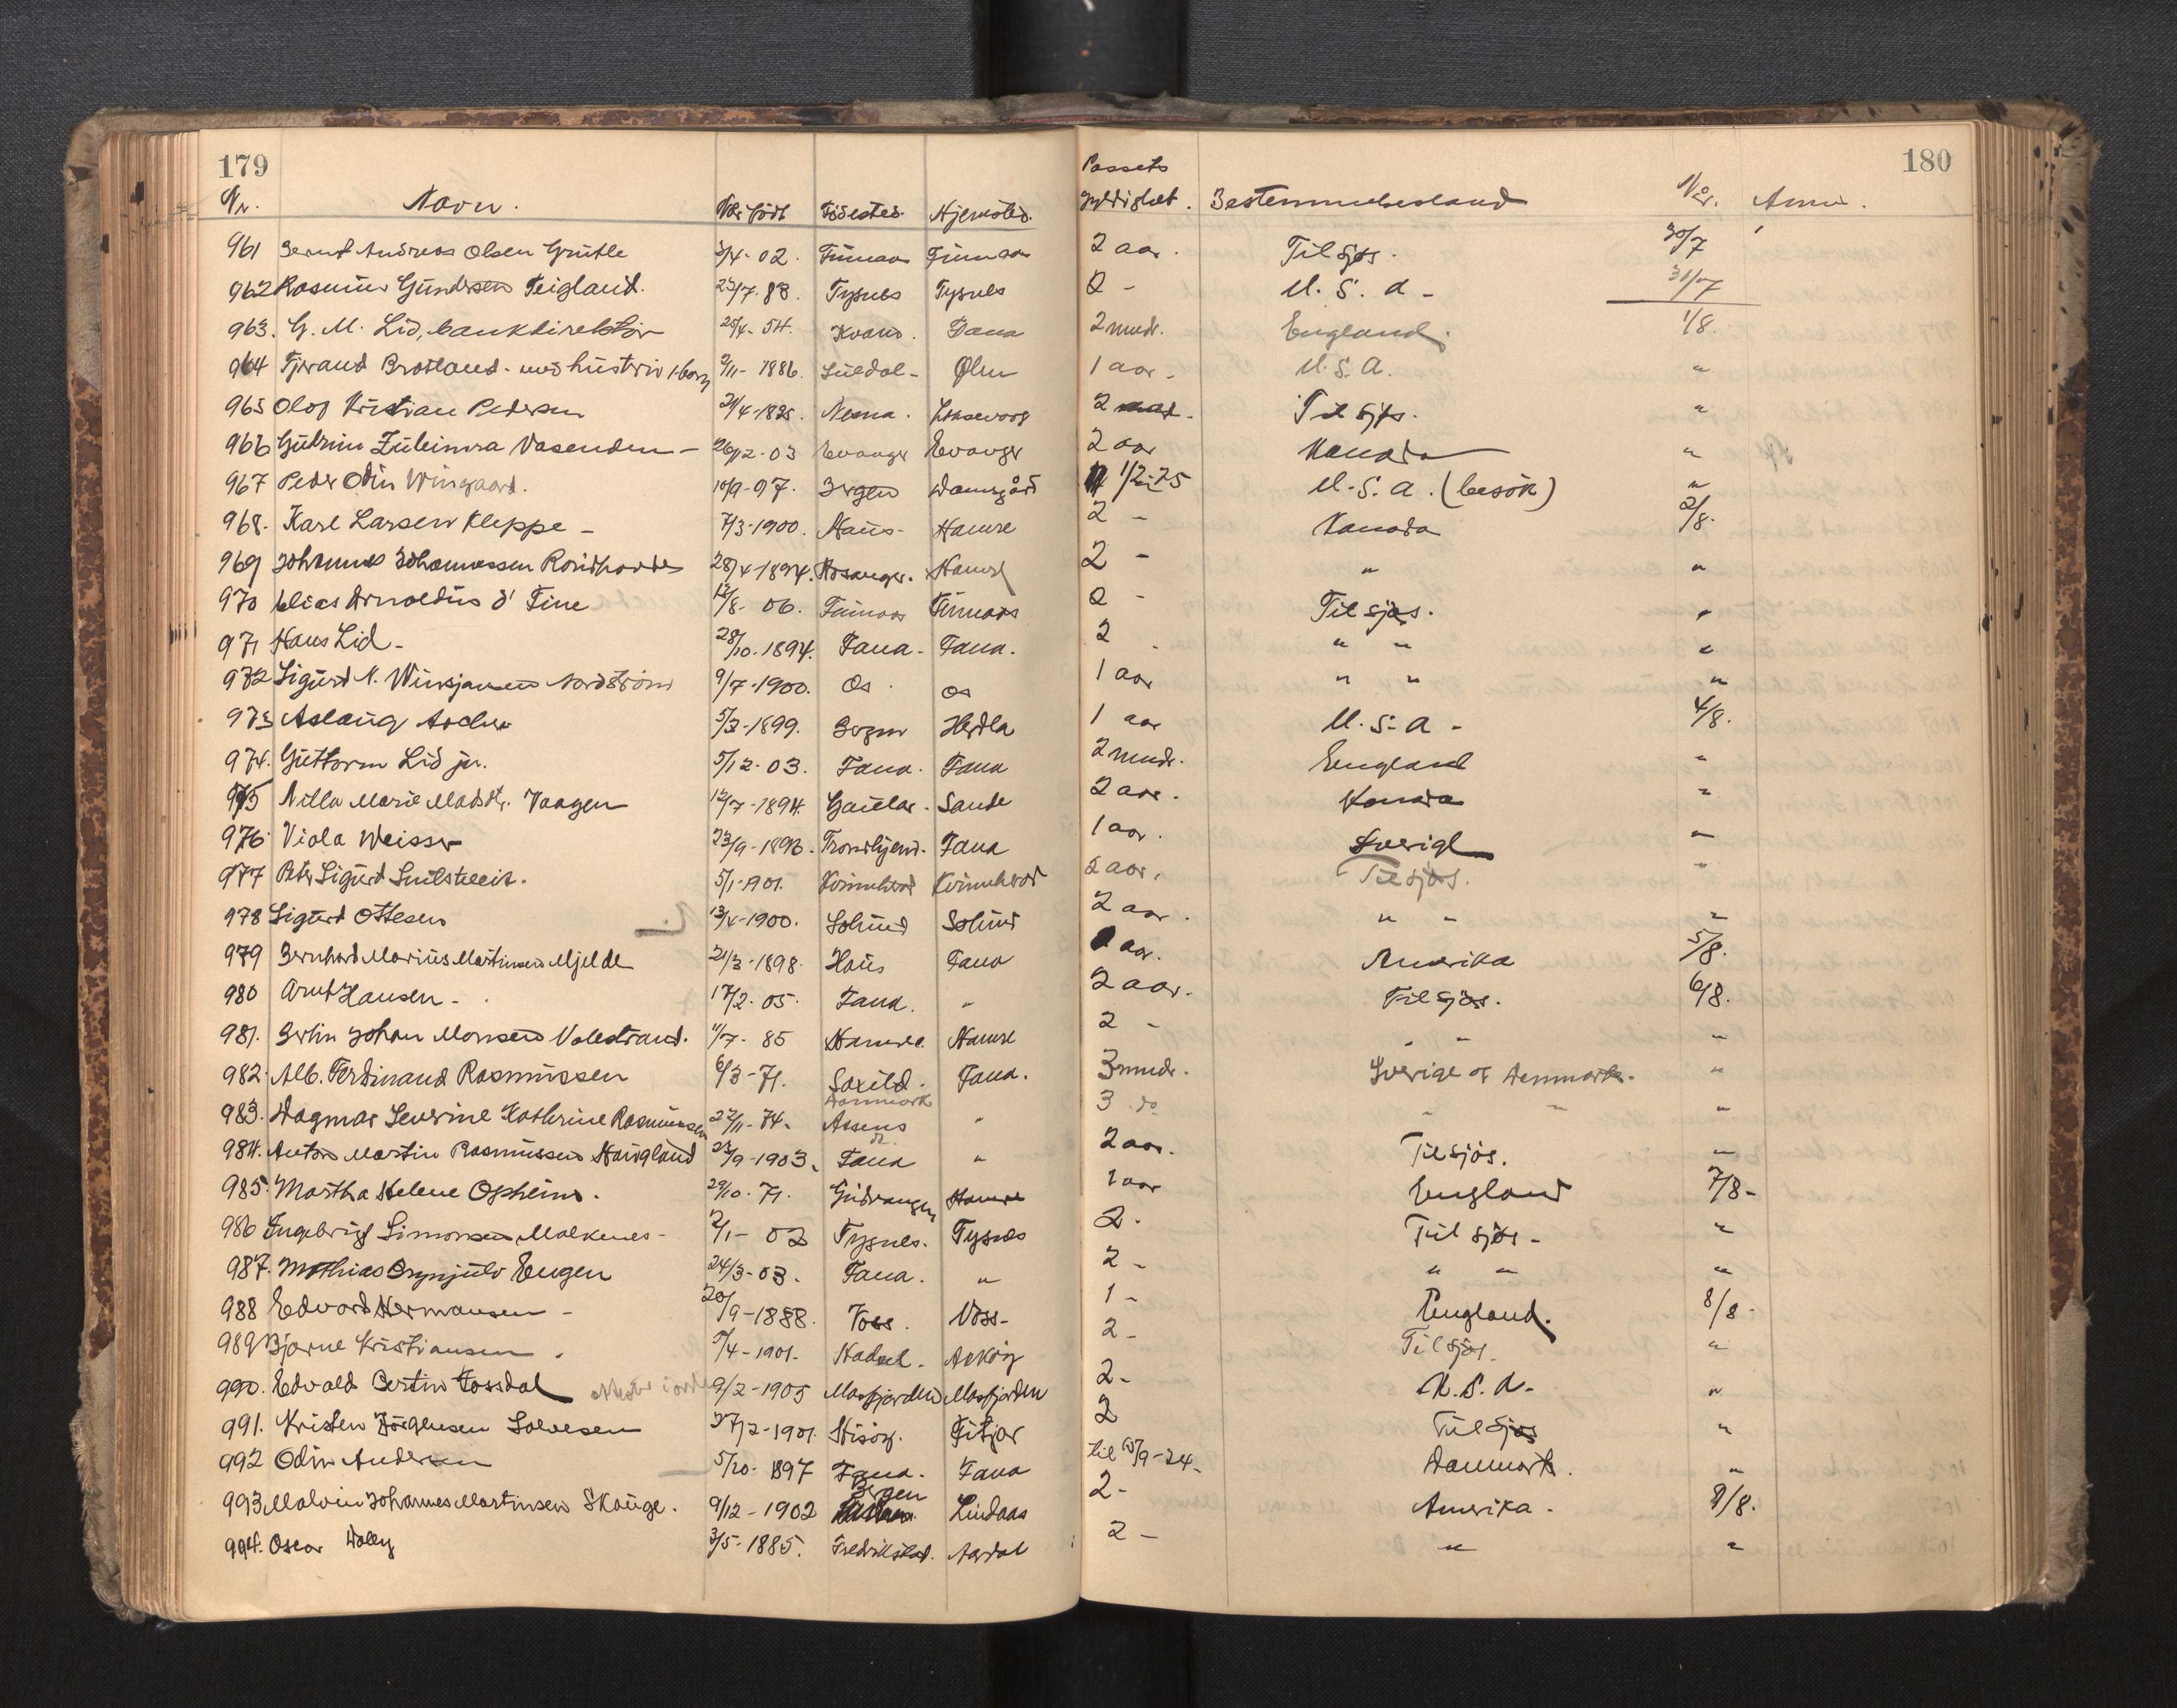 179
180
Nr. Navn. Når født Fødested. Hjemsted. Passets gyldighet. Bestemmelsesland Når. Anm.
961 Bernt Andreas Olsen Grutle 3/4-02. Finnaas Finnaas 2 aar. Tilsjøs. 30/7
962 Rasmus Gundersen Teigland. 23/7.88. Tysnes Tysnes 2 - U.S.A - 31/7
963. G. M. Lid, bankdirektør 25/4-54. Kvam. Fana 2 mndr. England. 1/8.
964 Tjerand Brotland - med hustru 1 barn 2/11-1886. Suldal - Ølen 1 aar - U.S.A. "
965 Olof Kristian Pedersen 21/4-1825. Nesna. Laksevaag 2 aar. Til sjøs. "
966 Gudrun Zuleima Vasenden - 26/12-03 Evanger Evanger 2 aar Kanada "
967 Peder Odin Wingaard. 10/9-97. Bergen Damsgård 1/2-25 U.S.A. (besøk) "
968. Karl Larsen Kleppe - 7/3-1900. Haus - Hamre 2 - Kanada 2/8.
969 Johannes Johannessen Rondhovde 28/4-1894. Hosanger. Hamre 2 - " "
970 Elias Arnoldus d' Fine 12/8-06. Finnaas Finnaas 2 - Til sjøs. "
971 Hans Lid - 28/10-1894. Fana - Fana. 2 " " "
972 Sigurd N. Winsjansen Nordstrøm 9/7-1900. Os. Os 1 aar " " "
973 Aslaug Ascher 5/3-1899. Bergen Herdla 1 aar U.S.A - 4/8.
974. Guttorm Lid jr. 5/12-03. Fana. Fana 2 mndr. England "
975 Nilla Marie Madsdtr. Vaagen 12/7-1894. Gaular. Sande 2 aar. Kanada "
976. Viola Weisser 23/9-1893. Trondhjem. Fana 1 aar. Sverige "
977 Peter Sigurd Smilsteeit. 5/1-1901. Kvinnherad Kvinnherad 2 aar. Til sjøs. "
978 Sigurd Ottesen 13/4-1900. Solund Solund 2 aar. " " "
979 Bernhard Marius Martinsen Mjelde 21/3-1898. Haus Fana aar. Amerika 5/8.
980 Arnt Hansen - 17/2.05. Fana. " 2 aar. Til sjøs. 6/8.
981. Berlin Johan Monsen Valestrand. 11/7-85 Hamre. Hamre 2 - " " "
982. Alb. Ferdinand Rasmussen 6/3-71. Saxild. Danmark Fana. 3 mndr. Sverige og Denmark. "
983. Dagmar Severine Kathrine Rasmussen 27/11-74. Assens do. " 3 do " " "
984. Anton Martin Rasmussen Haugland 23/9-1903. Fana " 2 aar. Tilsjøs. "
985. Martha Helene Opheim. 29/10.71. Gudvangen Hamre 1 aar England 7/8-
986 Ingebrigt Simonsen Malkenes - 2/1-02 Tysnes. Tysnes 2. Til sjøs - "
987. Mathias Brynjulv Eugen 24/3-03. Fana. " 2 - " " "
988 Edvard Hermansen - 20/9-1888. Voss. Voss - 1 - England. 8/8-
989 Bjarne Kristiansen. 5/4-1901. Hadsel. Askøy 2 - Til sjøs. "
990. Edvald Bertin Fossdal 9/2-1905 Masfjorden Masfjorden 2 - U.S.A. "
991. Kristen Jørgensen Solvesen 27/2-1901. Hisøy. Fitjar 2 Til sjøs "
992 Odin Andersen 5/10-1897 Fana. Fana til 15/9-24. Danmark. "
993 Malvin Johannes Martinsen Skauge. 9/12-1902 Bergen Lindaas 2 - Amerika. 9/8.
994. Oscar Woley 3/5-1885. Fredrikstad. Aardal 2 - " "